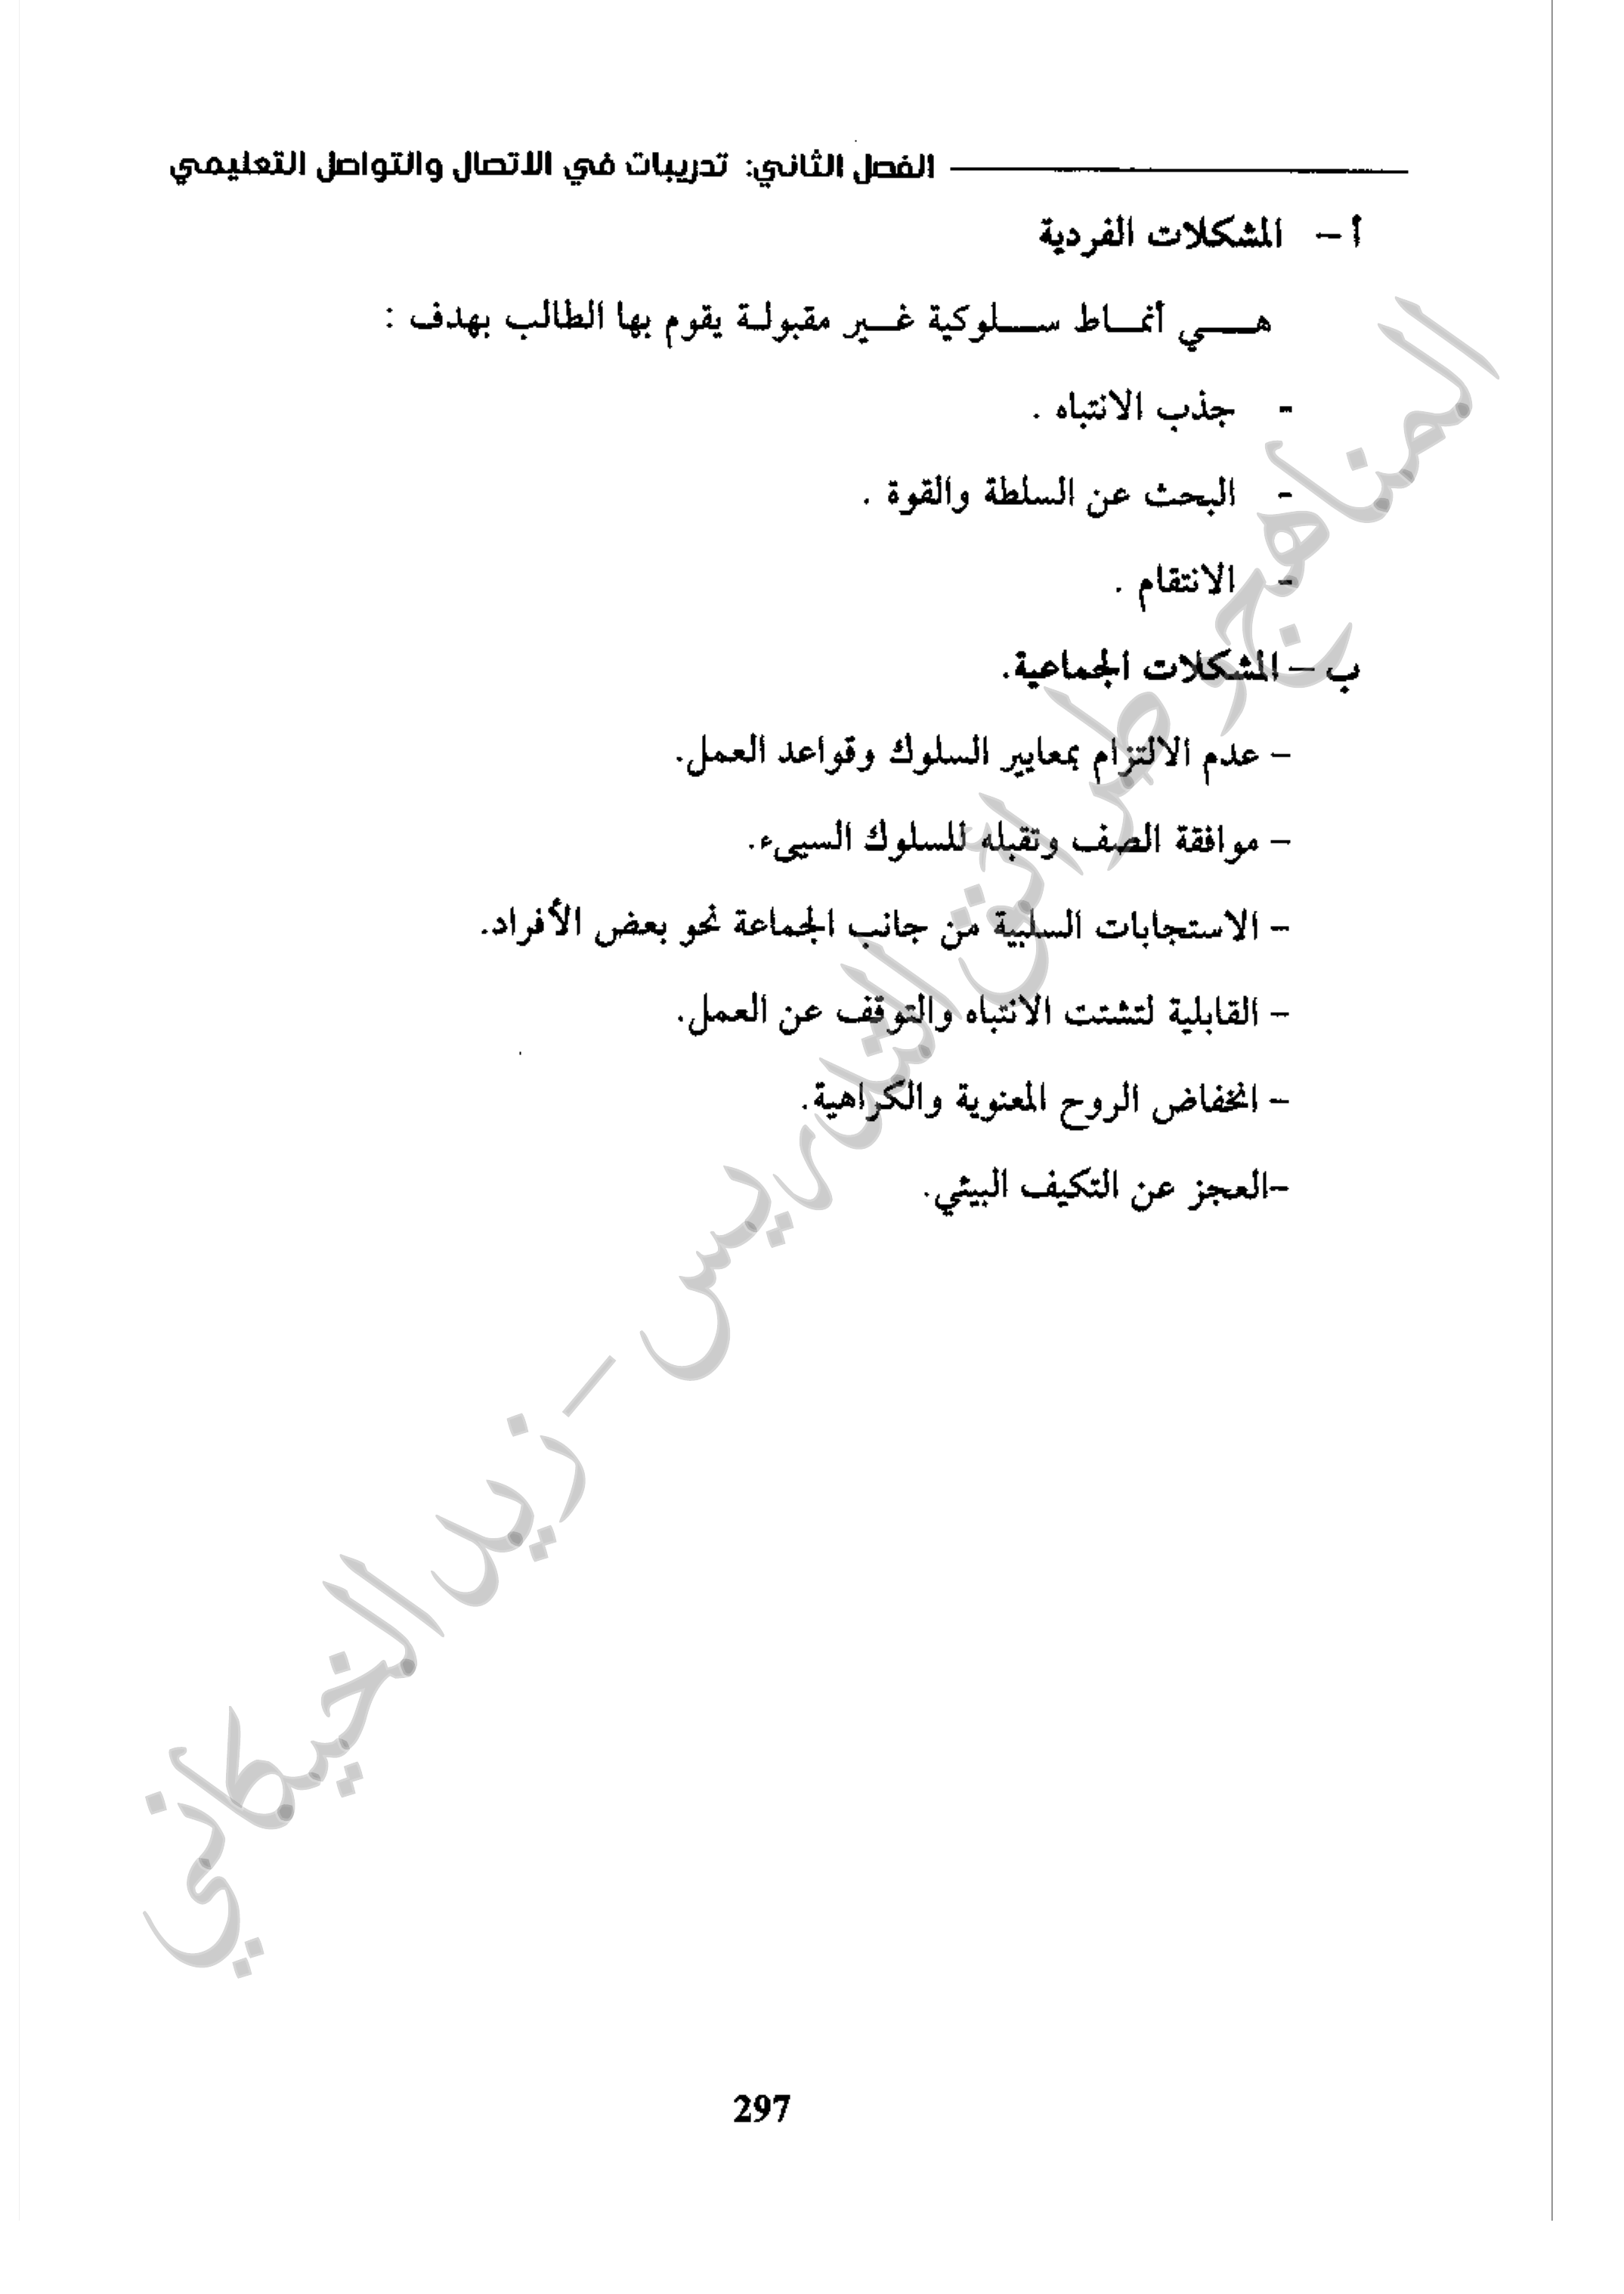 الفصل الثاني: تدريبات في الاتصال والتواصل التعليمي
أ – المشكلات الفردية
هي أنماط سلوكية غير مقبولة يقوم بها الطالب بهدف :
- جذب الانتباه .
- البحث عن السلطة والقوة .
- الانتقام .
ب – المشكلات الجماعية.
– عدم الالتزام بمعايير السلوك وقواعد العمل.
– موافقة الصف وتقبله للسلوك السيىء.
– الاستجابات السلبية من جانب الجماعة نحو بعض الأفراد.
– القابلية لتشتت الانتباه والتوقف عن العمل.
– انخفاض الروح المعنوية والكراهية.
–العجز عن التكيف البيئي.
المناهج وطرائق التدريس – زيد الخيكاني
297